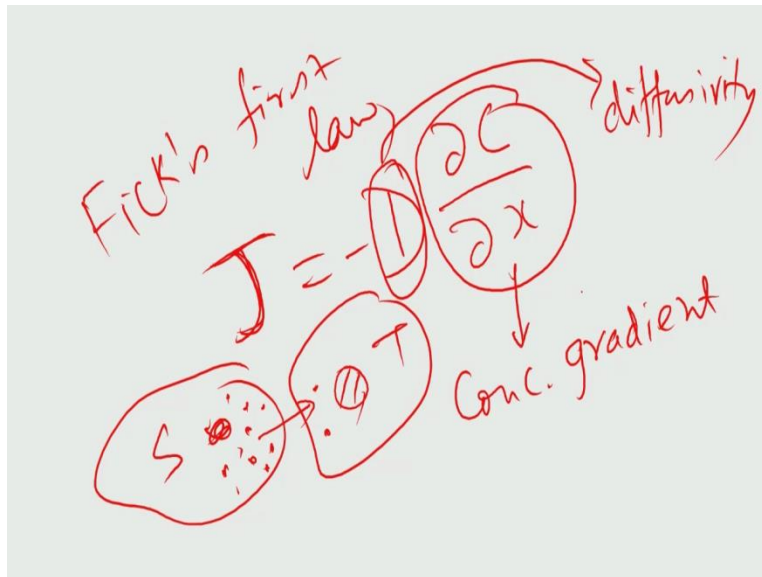 Fick's first
law
diffusivity
J = - D ∂C/∂x
Conc. gradient
S
T